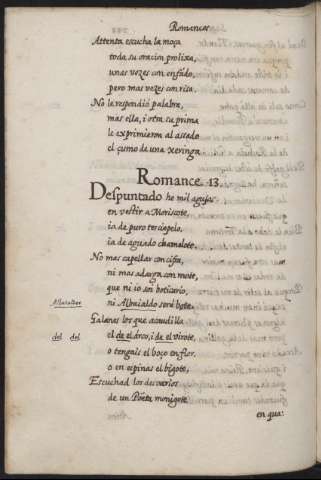 Romances
Attenta escucha la moça
toda su oracion prolixa,
unas vezes con enfado,
pero mas vezes con risa.
No le respondió palabra,
mas ella, i otra su prima
le exprimieron al assado
el çumo de una xeringa
Romance. 13.
Despuntado he mil agujas
en vestir a Moriscote,
ia de puro terciopelo,
ia de aguado chamalote.
No mas capellar con cifra,
ni mas adarga con mote,
que ni io soi boticario,
ni Albaialdo seré bote.
Galanes los que acaudilla
el de el arco, i de el virote,
del del
o tengais el boço en flor,
o en espinas el bigote,
Escuchad los desvarios
de un Poeta monigote
en qua: